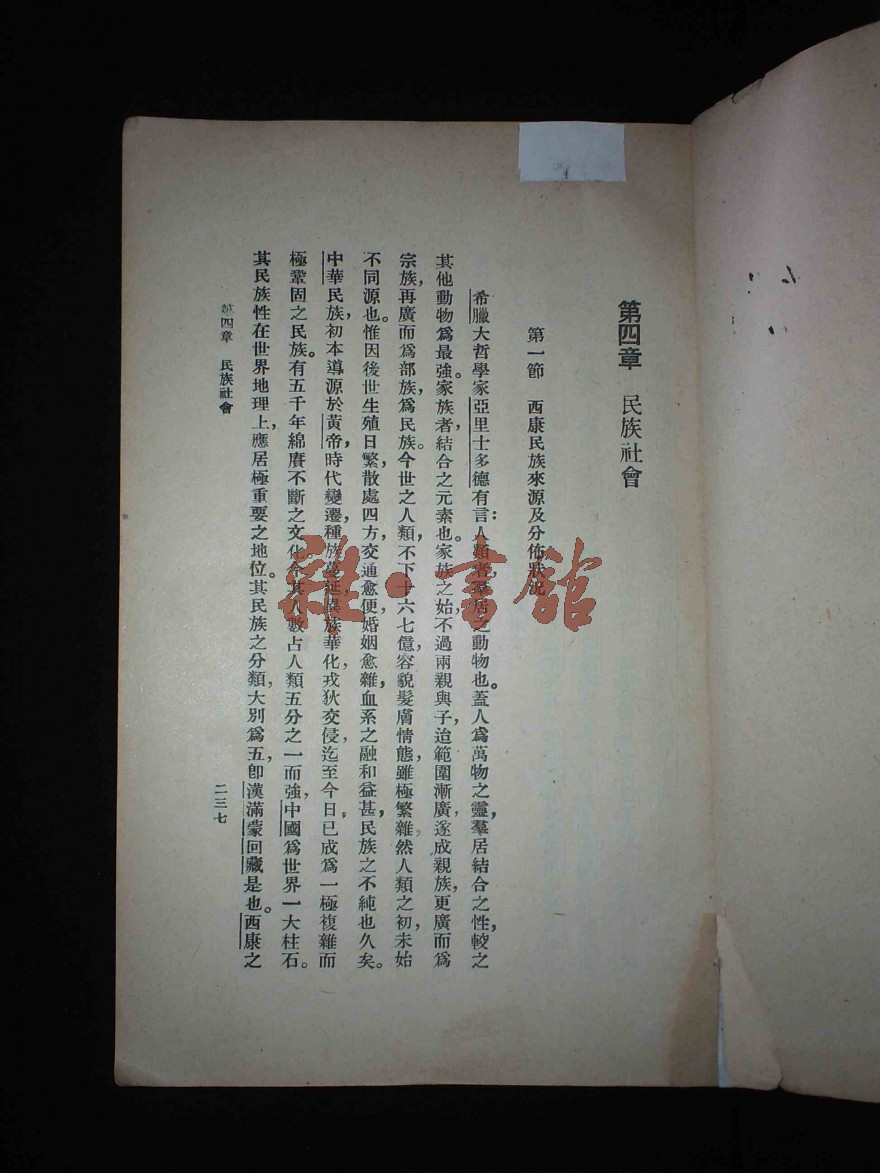 第四章　民族社會
第一節　西康民族來源及分佈狀況
希臘大哲學家亞里士多德有言：人類者，羣居之動物也。蓋人爲萬物之靈，羣居結合之性，較之
其他動物爲最強。家族者結合之元素也。家族之始，不過兩親與子，迨範圍漸廣，遂成親族，更廣而爲
宗族，再廣而爲部族，爲民族。今世之人類，不下十六七億，容貌髮膚情態，雖極繁雜，然人類之初，未始
不同源也。惟因後世生殖日繁，散處四方，交通愈便，婚姻愈雜，血系之融和益甚，民族之不純也久矣。
中華民族，初本導源於黃帝，時代變遷，種族蔓延，異族華化，戎狄交侵，迄至今日，已成爲一極複雜而
極鞏固之民族。有五千年綿賡不斷之文化，今其人數占人類五分之一而強，中國爲世界一大柱石。
其民族性在世界地理上，應居極重要之地位。其民族之分類，大別爲五，卽漢滿蒙回藏是也。西康之
第四章　民族社會
二三七
雜·書館